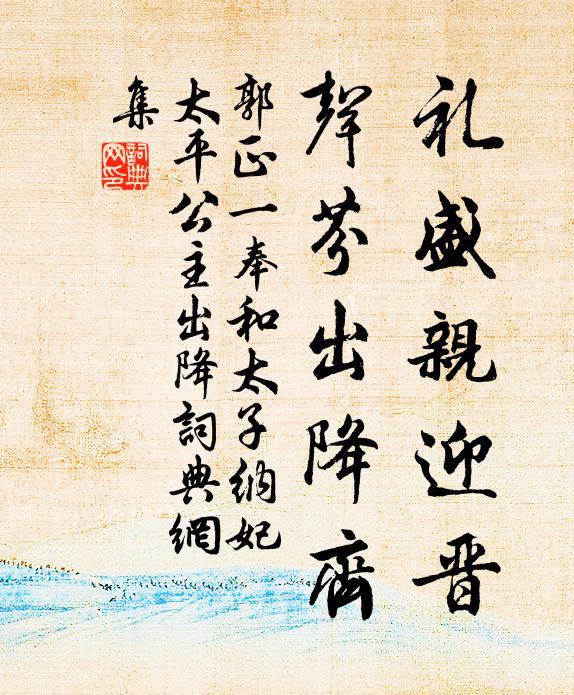 礼盛親迎晋
聲芬出降齊
郭正一奉和太子納妃
太平公主出降詞典網
集
詞典
网印